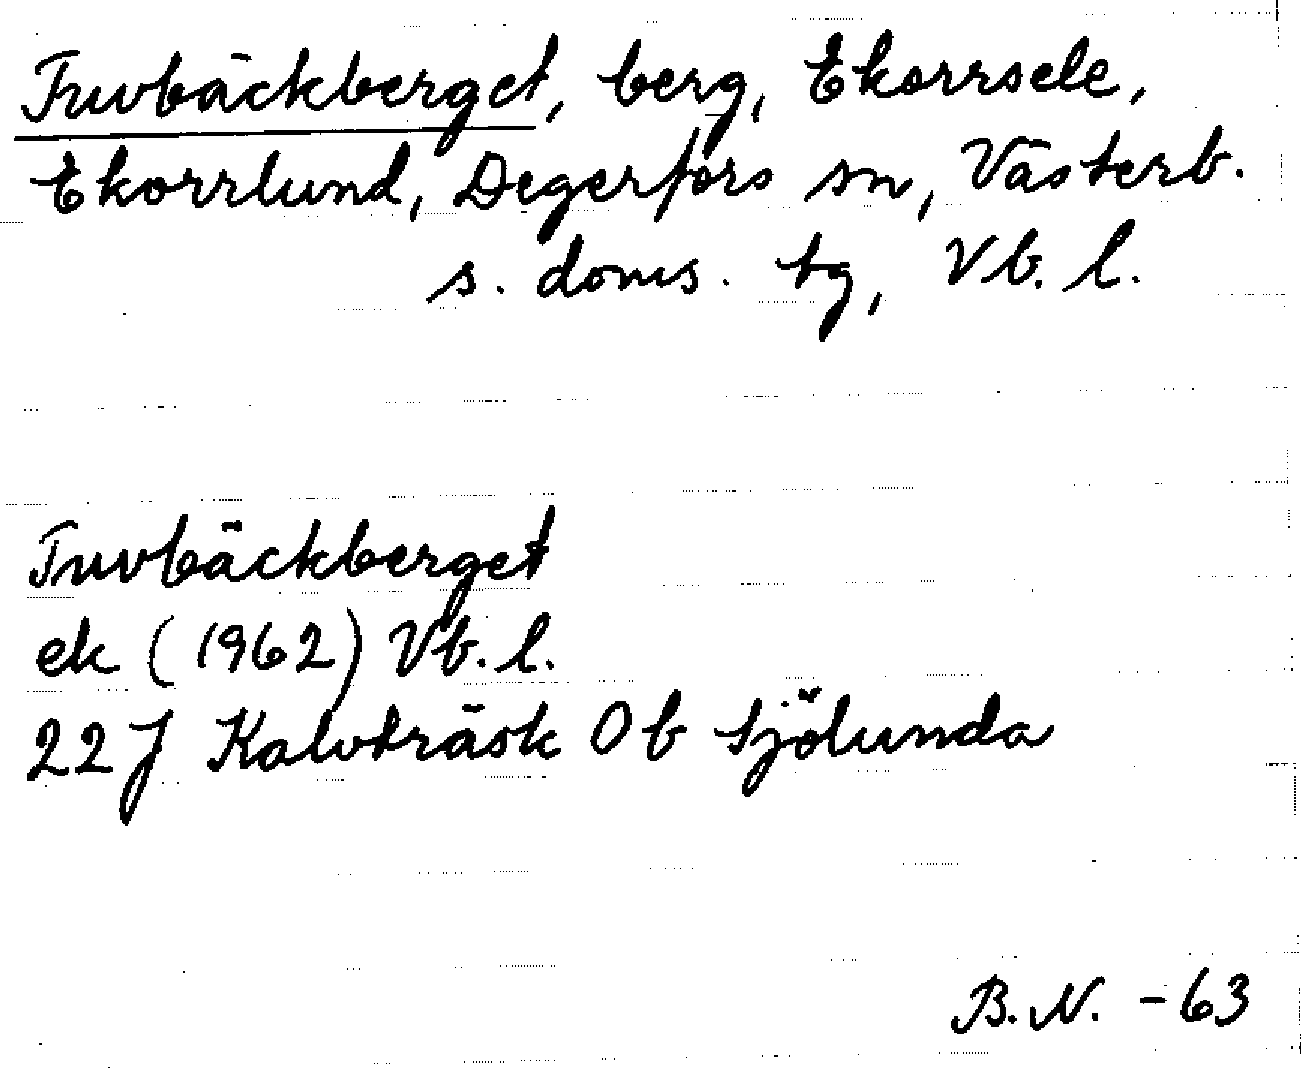 Tuvbäckberget, berg, Ekorrsele,
Ekorrlund, Degerfors sn, Västerb.
s. doms. tg, Vb. l.
Tuvbäckberget
ek (1962) Vb. l.
22 J Kalvträsk Ob Sjölunda
B.N. -63